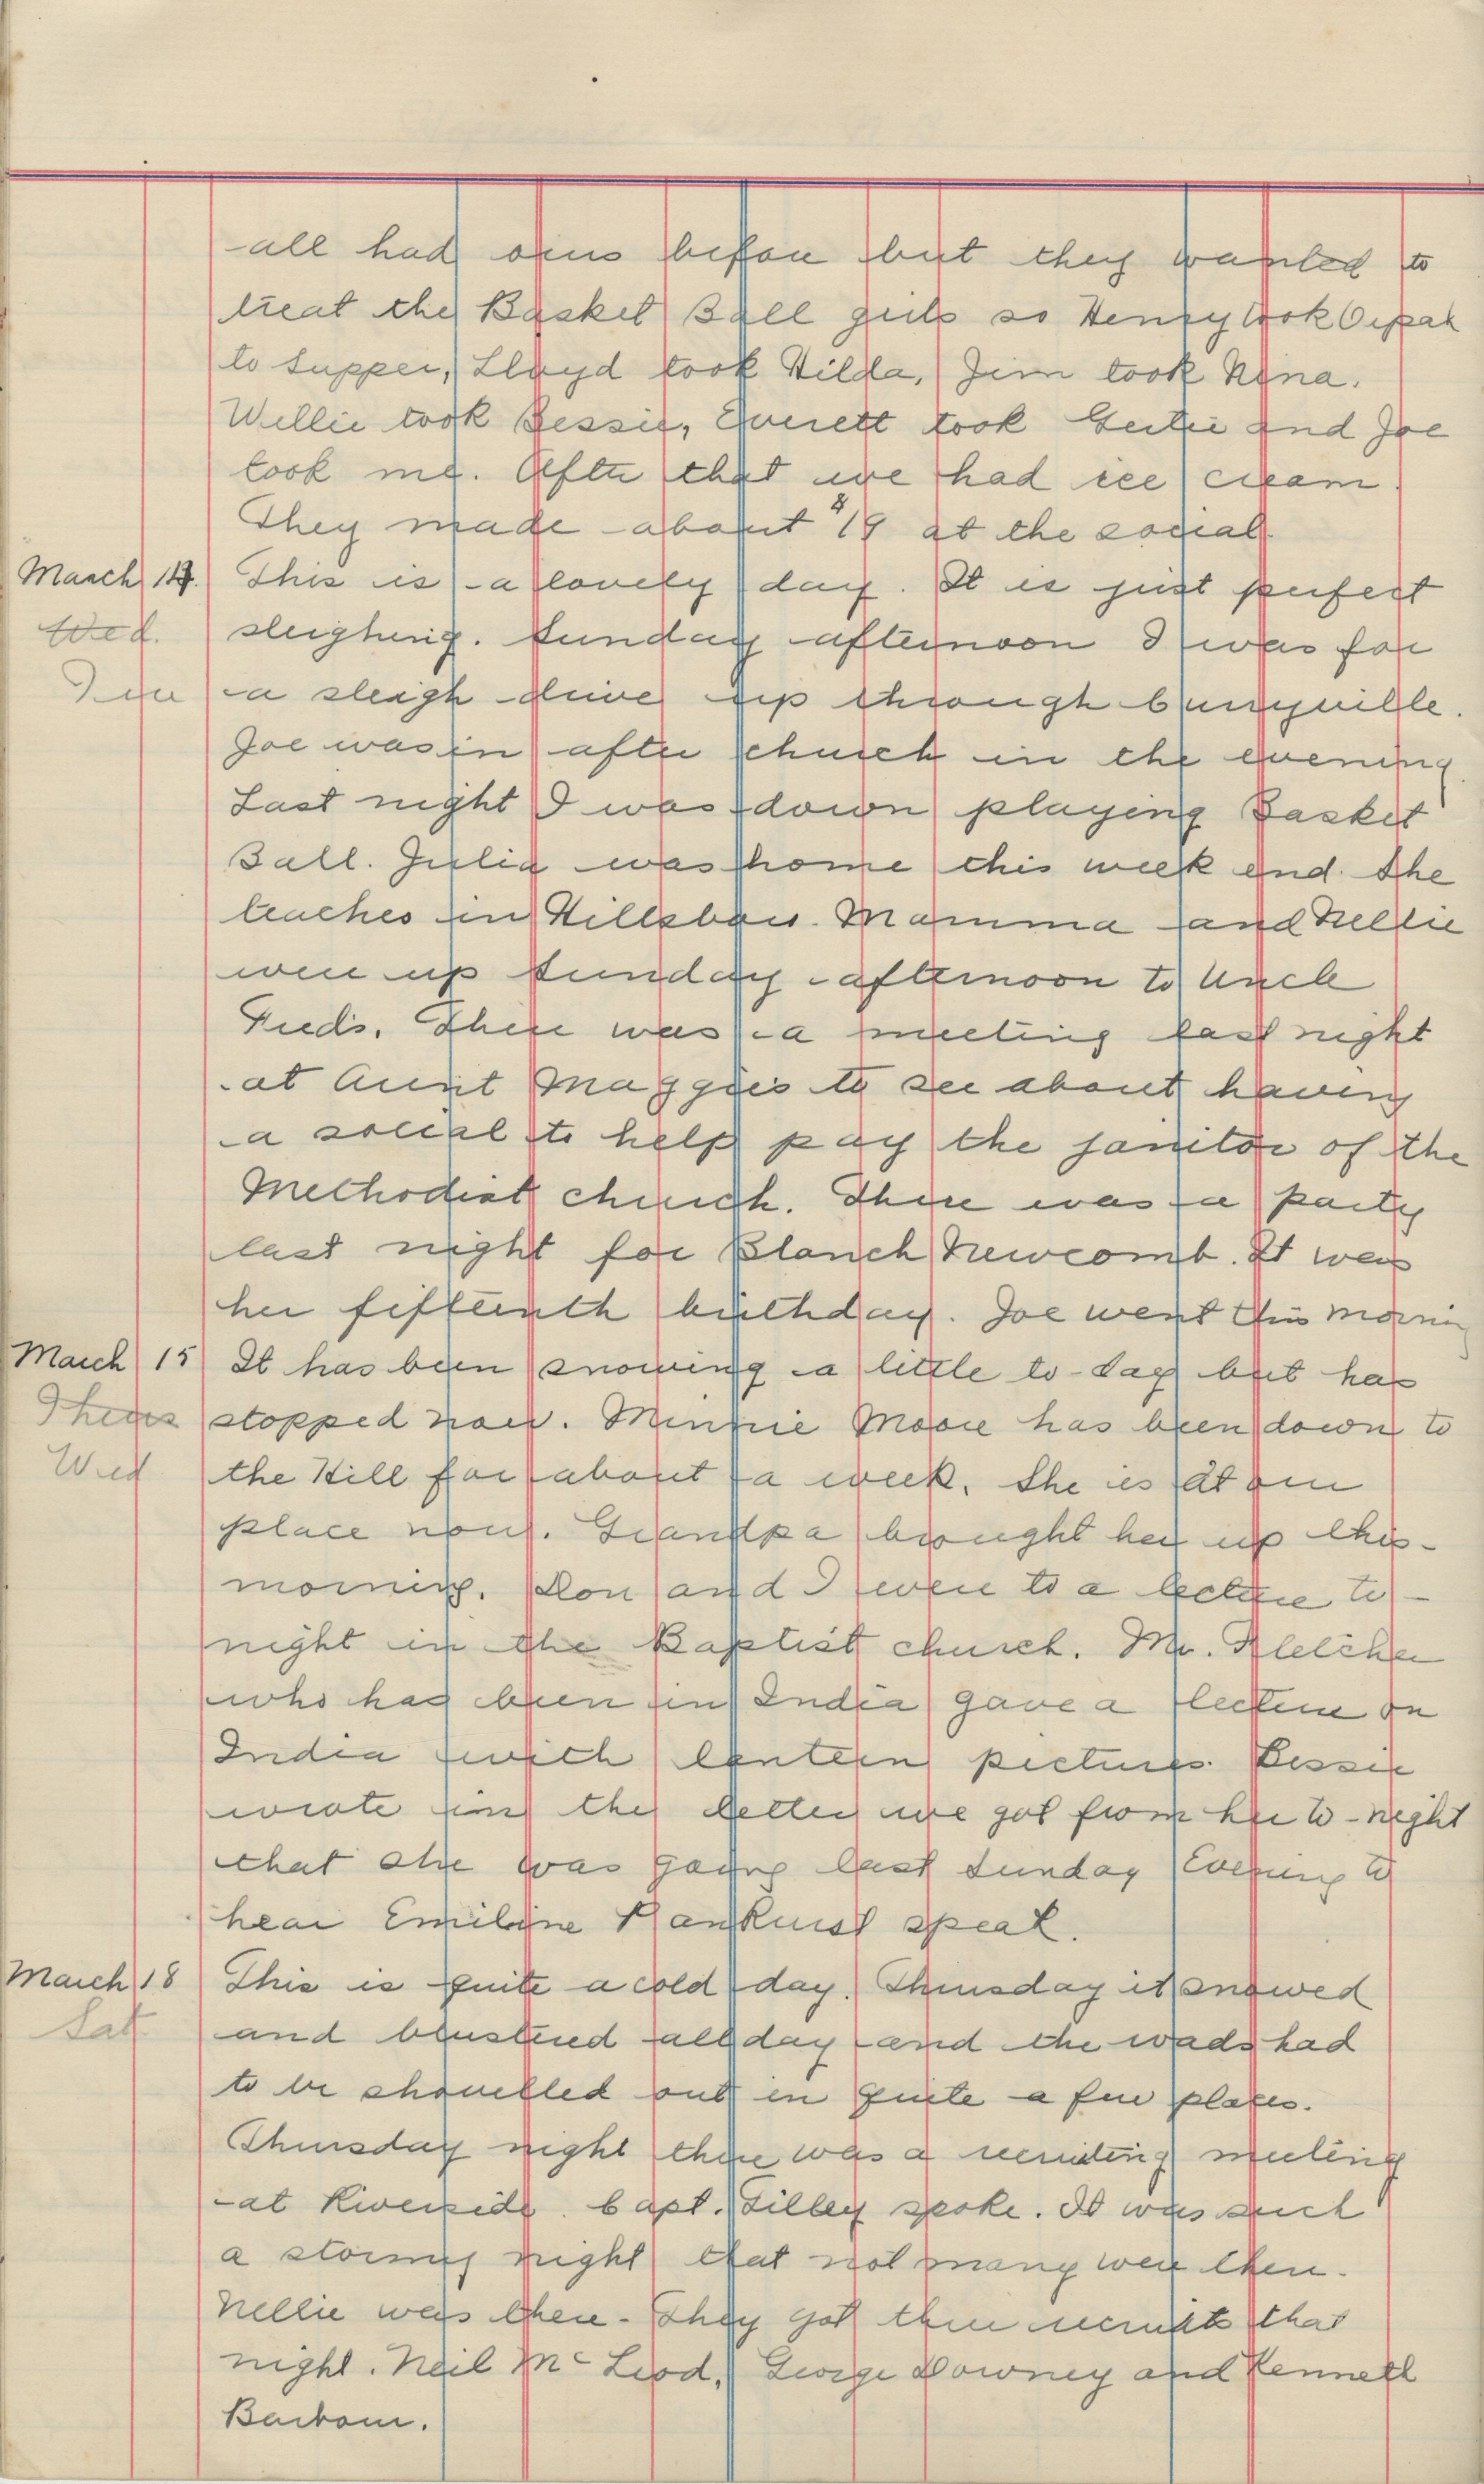 all had ours before but they wanted to
treat the Basket Ball girls so Henry took Orpah
to supper, Lloyd took Hilda, Jim took Nina.
Willie took Bessie, Everett took Gertie and Joe
took me. After that we had ice cream.
They made about $19 at the social.
March 14. This is a lovely day. It is just perfect
Wed. sleighing. Sunday afternoon I was for
Tue a sleigh drive up through Curryville.
Joe was in after church in the evening.
Last night I was down playing Basket
Ball. Julia was home this week end. She
teaches in Hillsboro. Mamma and Nellie
were up Sunday afternoon to Uncle
Fred's. There was a meeting last night
at Aunt Maggie's to see about having
a social to help pay the janitor of the
Methodist church. There was a party
last night for Blanch Newcomb. It was
her fifteenth birthday. Joe went this morning
March 15 It has been snowing a little to-day but has
Thurs stopped now. Minnie Moore has been down to
Wed the Hill for about a week. She is at our
place now. Grandpa brought her up this-
morning. Don and I were to a lecture to-
night in the Baptist church. Mr. Fletcher
who has been in India gave a lecture on
India with lantern pictures. Bessie
wrote in the letter we got from her to-night
that she was going last Sunday Evening to
hear Emiline Pankurst speak.
March 18 This is quite a cold day. Thursday it snowed
Sat. and blustered all day and the roads had
to be shovelled out in quite a few places.
Thursday night there was a recruiting meeting
at Riverside. Capt. Tilley spoke. It was such
a stormy night that not many were there.
Nellie was there. They got three recruits that
night. Neil McLeod, George Downey and Kenneth
Barbour.